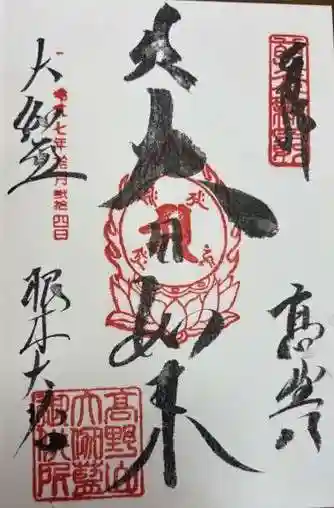 奉拝
高野山
大日如来
大伽藍
根本大塔
令和七年拾月弐拾四日
高野山
大伽藍
御供所